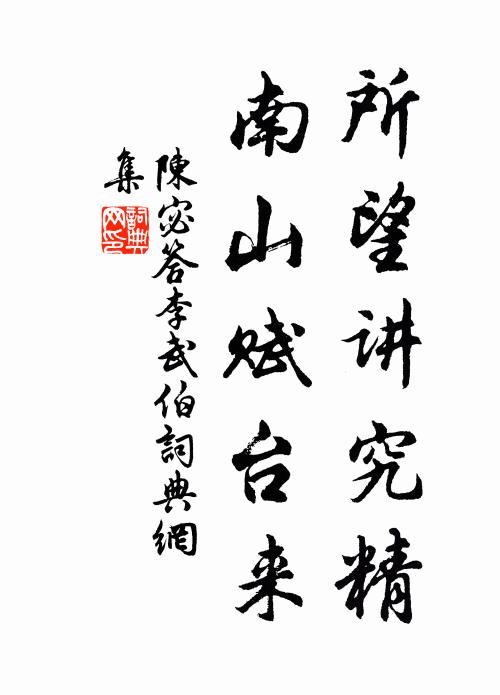 所望讲究精
南山赋台来
陳宓答李武伯詞典網
集
詞典
网印